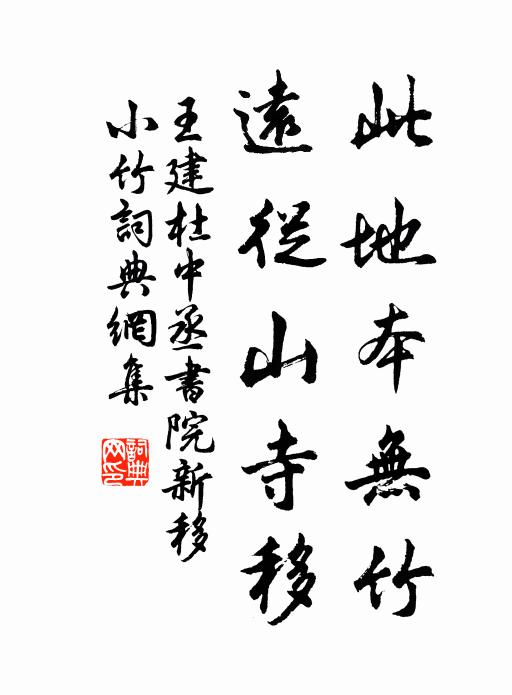 此地本無竹
遠從山寺移
王建杜中丞書院新移
小竹詞典網集
詞典網印